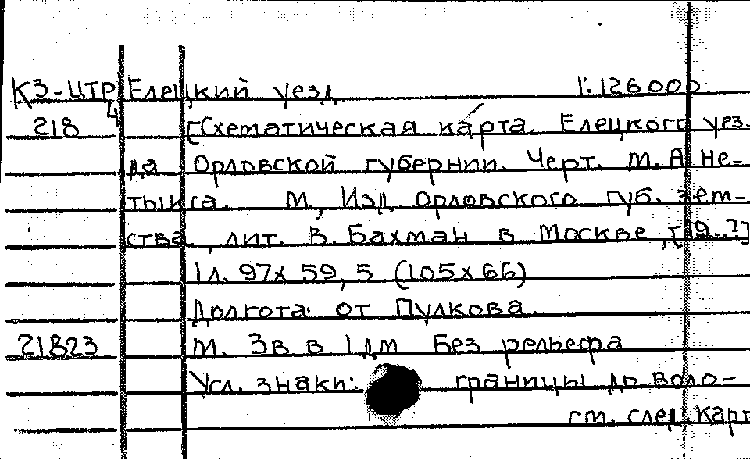 К3-ЦТР Елецкий уезд 1:126000
4
218 [Схематическая карта Елецкого уез-
да Орловской губернии. Черт. М.А. Не-
тыкса. М., Изд. Орловского губ. зем-
ства, лит. В. Бахман в Москве, [19..?]
1 л. 97х59,5 (105х66)
Долгота от Пулкова.
21823 М. 3 в. в 1 дм Без рельефа
Усл. знаки: границы до воло-
см. след. карт